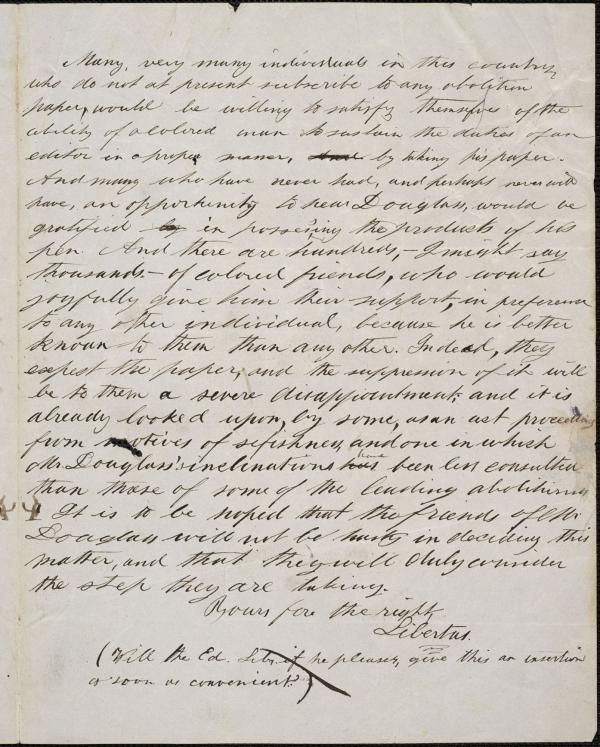 Many, very many individuals in this country
who do not at present subscribe to any abolition
paper, would be willing to satisfy themselves of the
ability of a colored man to sustain the duties of an
editor in a proper manner, and by taking his paper.
And many who have never had, and perhaps never will
have, an opportunity to hear Douglass, would be
gratified by in possessing the products of his
pen. And there are hundreds, - I might say
thousands - of colored friends, who would
joyfully give him their support, in preference
to any other individual, because he is better
known to them than any other. Indeed, they
expect the paper, and the suppression of it will
be to them a severe disappointment; and it is
already looked upon, by some, as an act proceeding
from motives of sefishness, and one in which
Mr. Douglass's inclinations has have been less consulted
than those of some of the leading abolitionists
It is to be hoped that the friends of Mr.
Douglass will not be hasty in deciding this
matter, and that they will duly consider
the step they are taking.
Yours for the right
Libertas.
(Will the Ed. Lib. if he pleases, give this an insertion
as soon as convenient.)